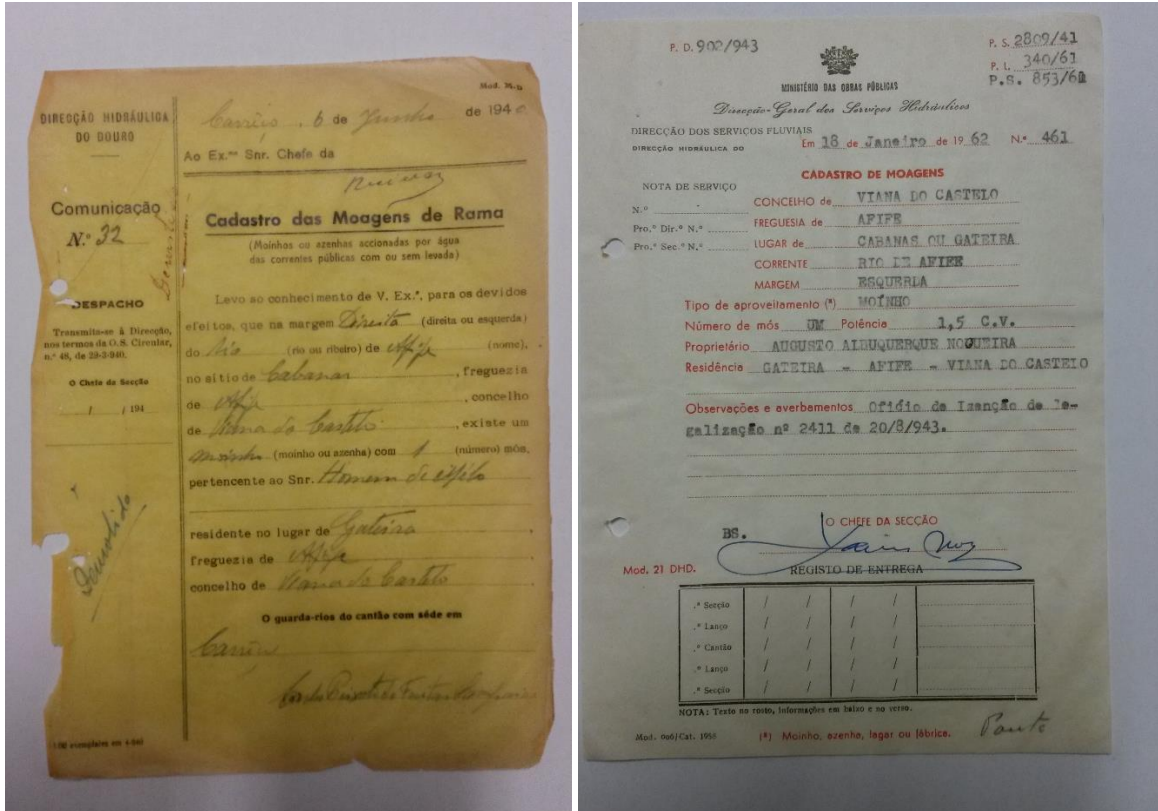 Mod. M. D
DIRECÇÃO HIDRÁULICA
DO DOURO
Comunicação
N.º 32
DESPACHO
Transmita-se à Direcção,
nos termos da O.S. Circular,
n.º 48, de 29-3-940.
O Chefe da Secção
/ / 194
Demolido
Carreço, 6 de Junho de 1940
Ao Ex.mo Snr. Chefe da
Cadastro das Moagens de Rama
(Moinhos ou azenhas accionadas por água
das correntes públicas com ou sem levada)
Levo ao conhecimento de V. Ex.ª, para os devidos
efeitos, que na margem Direita (direita ou esquerda)
do rio (rio ou ribeiro) de Afife (nome),
no sítio de Cabanas, freguezia
de Afife, concelho
de Viana do Castelo, existe um
moinho (moinho ou azenha) com 1 (número) mós,
pertencente ao Snr. Homem de Melo
residente no lugar de Gateira,
freguezia de Afife
concelho de Viana do Castelo
O guarda-rios do cantão com séde em
Carreço
P. D. 902/943
P. S. 2809/41
P. L. 340/61
P.S. 853/60
MINISTÉRIO DAS OBRAS PÚBLICAS
Direcção-Geral dos Serviços Hidráulicos
DIRECÇÃO DOS SERVIÇOS FLUVIAIS
DIRECÇÃO HIDRÁULICA DO
Em 18 de Janeiro de 1962 N.º 461
CADASTRO DE MOAGENS
NOTA DE SERVIÇO
N.º
Pro.º Dir.º N.º
Pro.º Sec.º N.º
CONCELHO de VIANA DO CASTELO
FREGUESIA de AFIFE
LUGAR de CABANAS OU GATEIRA
CORRENTE RIO DE AFIFE
MARGEM ESQUERDA
Tipo de aproveitamento (*) MOÍNHO
Número de mós UM Potência 1,5 C.V.
Proprietário AUGUSTO ALBUQUERQUE NOGUEIRA
Residência GATEIRA - AFIFE - VIANA DO CASTELO
Observações e averbamentos Ofídio de Izenção de le-
galização nº 2411 de 20/8/943.
O CHEFE DA SECÇÃO
BS.
Mod. 21 DHD.
REGISTO DE ENTREGA
.ª Secção / / / /
.º Lanço / / / /
.º Cantão / / / /
.º Lanço / / / /
.ª Secção / / / /
NOTA: Texto no rosto, informações em baixo e no verso.
(*) Moinho, azenha, lagar ou fábrica.
Ponte